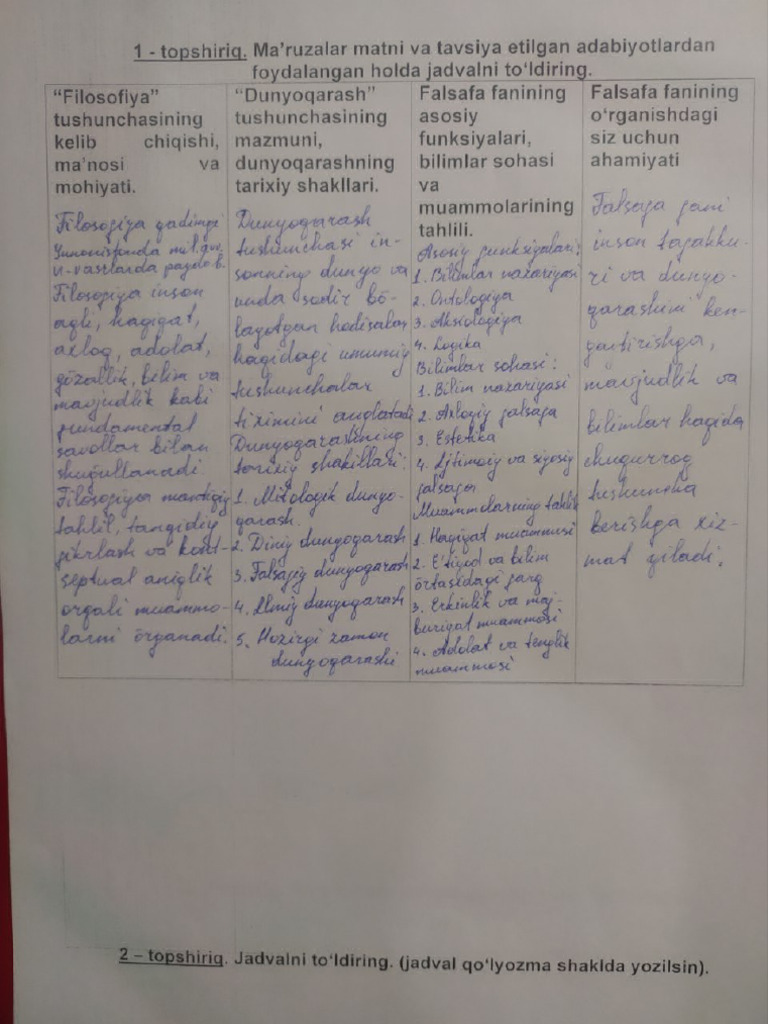 1 - topshiriq. Ma'ruzalar matni va tavsiya etilgan adabiyotlardan
foydalangan holda jadvalni to'ldiring.
"Filosofiya"
tushunchasining
kelib chiqishi,
ma'nosi va
mohiyati.
Filosofiya qadimgi
Yunonistonda mil.avv.
VI-V asrlarda paydo b.
Filosofiya inson
aqli, haqiqat,
axloq, adolat,
gözallik, bilim va
mavjudlik kabi
fundamental
savollar bilan
shuģullanadi
Filosofiya mantiqiy
tahlil, tanqidiy
fikrlash va kont-
septual aniqlik
orqali muammo-
larni örganadi.
"Dunyoqarash"
tushunchasining
mazmuni,
dunyoqarashning
tarixiy shakllari.
Dunyoqarash
tushunchasi in-
sonning dunyo va
unda sodir bö-
layotgan hodisalar
haqidagi umumiy
tushunchalar
tizimini anglatadi
Dunyoqarashning
tarixiy shakillari:
1. Mifologik dunyo-
qarash.
2. Diniy dunyoqarash
3. Falsafiy dunyoqarash
4. Ilmiy dunyoqarash
5. Hozirgi zamon
dunyoqarashi
Falsafa fanining
asosiy
funksiyalari,
bilimlar sohasi
va
muammolarining
tahlili.
Asosiy funksiyalari:
1. Bilimlar nazariyasi
2. Ontologiya
3. Aksiologiya
4. Logika
Bilimlar sohasi:
1. Bilim nazariyasi
2. Axloqiy falsafa
3. Estetika
4. Ijtimoiy va siyosiy
falsafa
Muammolarning tahlili
1. Haqiqat muammosi
2. E'tiqod va bilim
örtasidagi farq
3. Erkinlik va maj-
buriyat muammosi
4. Adolat va tenglik
muammosi
Falsafa fanining
o'rganishdagi
siz uchun
ahamiyati
Falsafa fani
inson tafakku-
ri va dunyo-
qarashini ken-
gaytirishga,
mavjudlik va
bilimlar haqida
chuqurroq
tushuncha
berishga xiz-
mat qiladi.
2 – topshiriq. Jadvalni to'ldiring. (jadval qo'lyozma shaklda yozilsin).